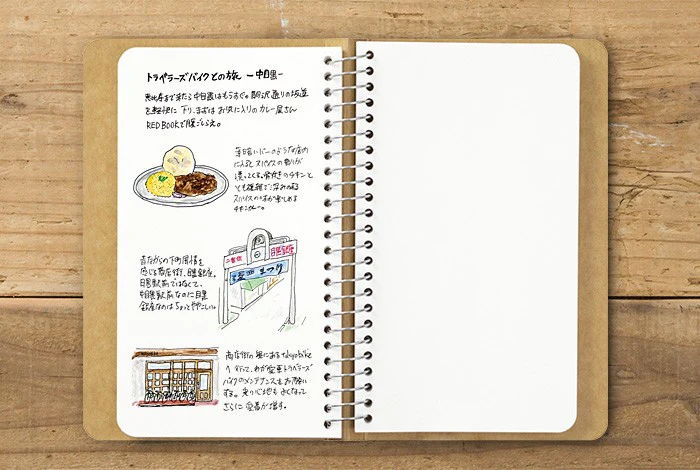 トラベラーズバイクとの旅 ー中目黒ー
恵比寿まで来たら中目黒はもうすぐ。駒沢通りの坂道
を軽快に下り、まずはお気に入りのカレー屋さん
RED BOOKで腹ごしらえ。
薄暗いバーのような店内
に入ると スパイスの香りが
漂ってくる。骨付きのチキンと
とも複雑で深みのある
スパイスの味が楽しめる
チキンカレー。
昔ながらの下町風情を
感じる商店街、目黒銀座。
目黒駅前ではなくて、
中目黒駅前なのに目黒
銀座なのはちょっとややこしい。
二番街
目黒銀座
まつり
商店街の奥にあるtokyobike
へ行って、わが愛車トラベラーズ
バイクのメンテナンスをお願い
する。乗り心地もよくなって
さらに愛着が増す。